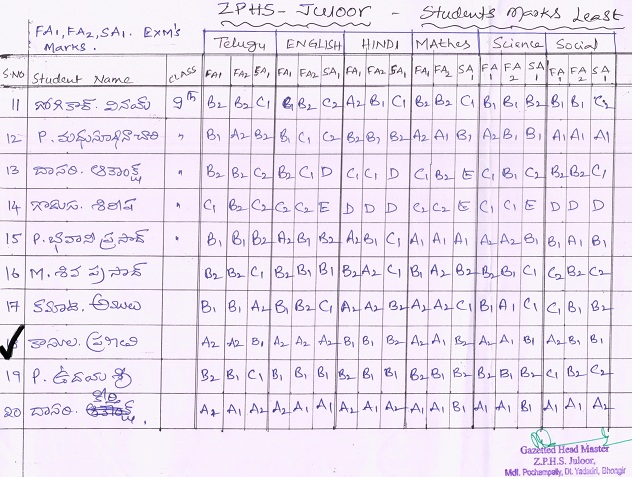 ZPHS - Juloor - Students Marks Least
FA1, FA2, SA1. EXM's
Marks.
Telugu ENGLISH HINDI MAthes Science Social
S.NO Student Name CLASS FA1 FA2 SA1 FA1 FA2 SA1 FA1 FA2 SA1 FA1 FA2 SA1 FA1 FA2 SA1 FA1 FA2 SA1
11 వినయ్ 9th B2 B2 C1 B1 B2 C2 A2 B1 C1 B2 B2 C1 B1 B1 B2 B1 B1 C2
12 P. మధుసూధనాచారి " B1 A2 B2 B1 C1 C2 B2 B1 B2 A2 A1 B1 A2 B1 B1 A1 A1 A1
13 దాసరి. " B2 B2 C2 B2 C1 D C1 C1 D C1 B2 E C1 B1 C2 B2 B2 C1
14 శిరీష " C1 B2 C2 C2 C2 E D D D C2 C2 E C1 C1 E D D D
15 P. భవాని ప్రసాద్ " B1 B1 B2 A2 B1 B2 A2 B1 C1 A1 A1 A1 A2 A2 B1 B1 A1 B1
16 M. శివ ప్రసాద్ B2 B2 C1 B2 B1 B1 B2 A2 C1 B1 A2 B2 B2 B2 C1 C2 B2 C2
17 B1 B1 A2 B1 B2 C1 A2 A2 B2 A2 A2 C1 B1 A1 C1 C1 B2 B2
A2 A2 B1 A2 A2 A2 B1 B1 B2 A2 A1 B1 A2 A1 B1 A2 B1 B1
19 P. ఉదయ శ్రీ B2 B1 C1 B1 B1 B1 B2 B1 B1 B2 B1 B2 B2 B1 B2 C1 B2 C2
20 దాసరి. కీర్తి A2 A1 A2 A2 A1 A1 A2 A1 A2 A1 A1 B1 A2 A1 B1 A1 A1 A2
Gazetted Head Master
Z.P.H.S. Juloor,
Mdl. Pochampally, Dt. Yadadri, Bhongir